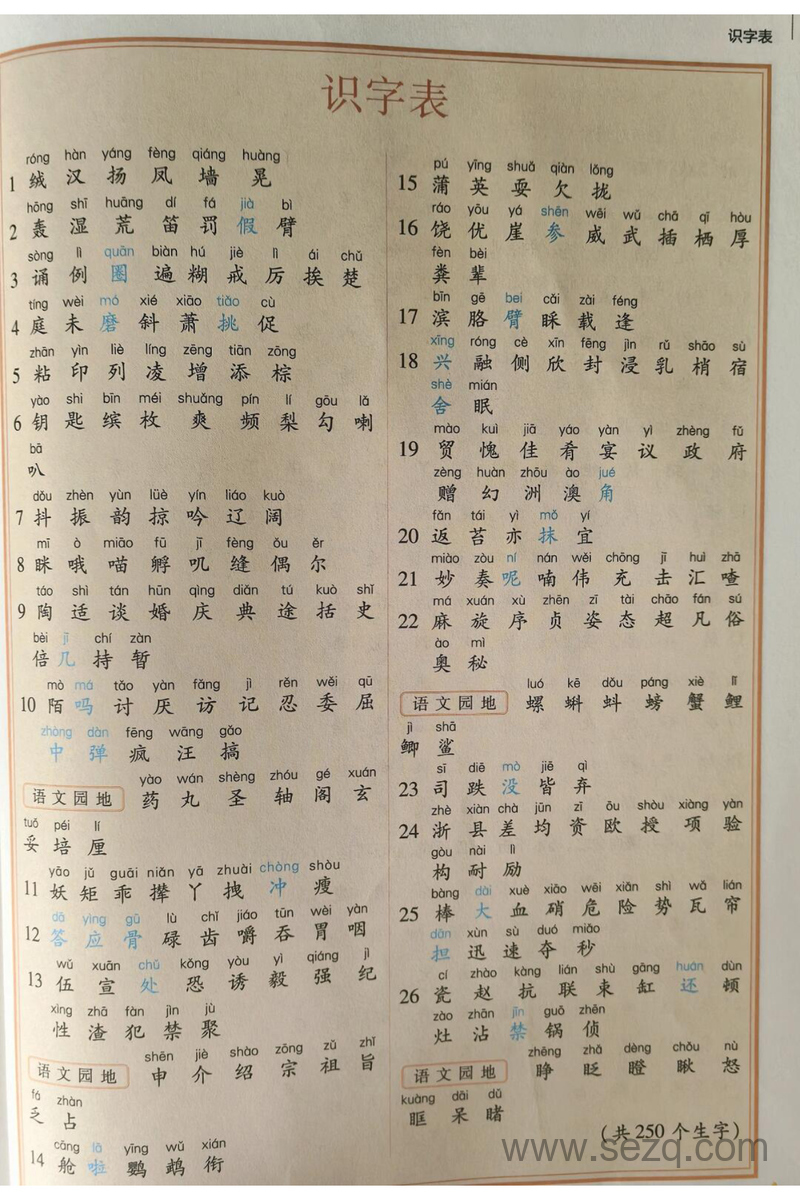 识字表
识字表
róng hàn yáng fèng qiáng huàng
1 绒 汉 扬 凤 墙 晃
hōng shī huāng dí fá jià bì
2 轰 湿 荒 笛 罚 假 臂
sòng lì quān biàn hú jiè lì ái chǔ
3 诵 例 圈 遍 糊 戒 厉 挨 楚
tíng wèi mó xié xiāo tiǎo cù
4 庭 未 磨 斜 萧 挑 促
zhān yìn liè líng zēng tiān zōng
5 粘 印 列 凌 增 添 棕
yào shi bīn méi shuǎng pín lí gōu lǎ
6 钥 匙 缤 枚 爽 频 梨 勾 喇
bā
叭
dǒu zhèn yùn lüè yín liáo kuò
7 抖 振 韵 掠 吟 辽 阔
mī ò miāo fū jī fèng ǒu ěr
8 眯 哦 喵 孵 叽 缝 偶 尔
táo shì tán hūn qìng diǎn tú kuò shǐ
9 陶 适 谈 婚 庆 典 途 括 史
bèi jǐ chí zàn
倍 几 持 暂
mò má tǎo yàn fǎng jì rěn wěi qū
10 陌 吗 讨 厌 访 记 忍 委 屈
zhòng dàn fēng wāng gǎo
中 弹 疯 汪 搞
yào wán shèng zhóu gé xuán
语文园地 药 丸 圣 轴 阁 玄
tuǒ péi lí
妥 培 厘
yāo jǔ guāi niǎn yā zhuài chòng shòu
11 妖 矩 乖 撵 丫 拽 冲 瘦
dā yìng gū lù chǐ jiáo tūn wèi yàn
12 答 应 骨 碌 齿 嚼 吞 胃 咽
wǔ xuān chǔ kǒng yòu yì qiáng jì
13 伍 宣 处 恐 诱 毅 强 纪
xìng zhā fàn jìn jù
性 渣 犯 禁 聚
shēn jiè shào zōng zǔ zhǐ
语文园地 申 介 绍 宗 祖 旨
fá zhàn
乏 占
cāng lā yīng wǔ xián
14 舱 啦 鹦 鹉 衔
pú yīng shuǎ qiàn lǒng
15 蒲 英 耍 欠 拢
ráo yōu yá shēn wēi wǔ chā qī hòu
16 饶 优 崖 参 威 武 插 栖 厚
fèn bèi
粪 辈
bīn gē bei cǎi zài féng
17 滨 胳 臂 睬 载 逢
xīng róng cè xīn fēng jìn rǔ shāo sù
18 兴 融 侧 欣 封 浸 乳 梢 宿
shè mián
舍 眠
mào kuì jiā yáo yàn yì zhèng fǔ
19 贸 愧 佳 肴 宴 议 政 府
zèng huàn zhōu ào jué
赠 幻 洲 澳 角
fǎn tái yì mǒ yí
20 返 苔 亦 抹 宜
miào zòu ní nán wěi chōng jī huì zhā
21 妙 奏 呢 喃 伟 充 击 汇 喳
má xuán xù zhēn zī tài chāo fán sú
22 麻 旋 序 贞 姿 态 超 凡 俗
ào mì
奥 秘
luó kē dǒu páng xiè lǐ
语文园地 螺 蝌 蚪 螃 蟹 鲤
jì shā
鲫 鲨
sī diē mò jiē qì
23 司 跌 没 皆 弃
zhè xiàn chà jūn zī ōu shòu xiàng yàn
24 浙 县 差 均 资 欧 授 项 验
gòu nài lì
构 耐 励
bàng dài xuè xiāo wēi xiǎn shì wǎ lián
25 棒 大 血 硝 危 险 势 瓦 帘
dān xùn sù duó miǎo
担 迅 速 夺 秒
cí zhào kàng lián shù gāng huán dùn
26 瓷 赵 抗 联 束 缸 还 顿
zào zhān jīn guō zhēn
灶 沾 禁 锅 侦
zhēng zhǎ dèng chǒu nù
语文园地 睁 眨 瞪 瞅 怒
kuàng dāi dǔ
眶 呆 睹
(共 250 个生字)
www.sezq.com